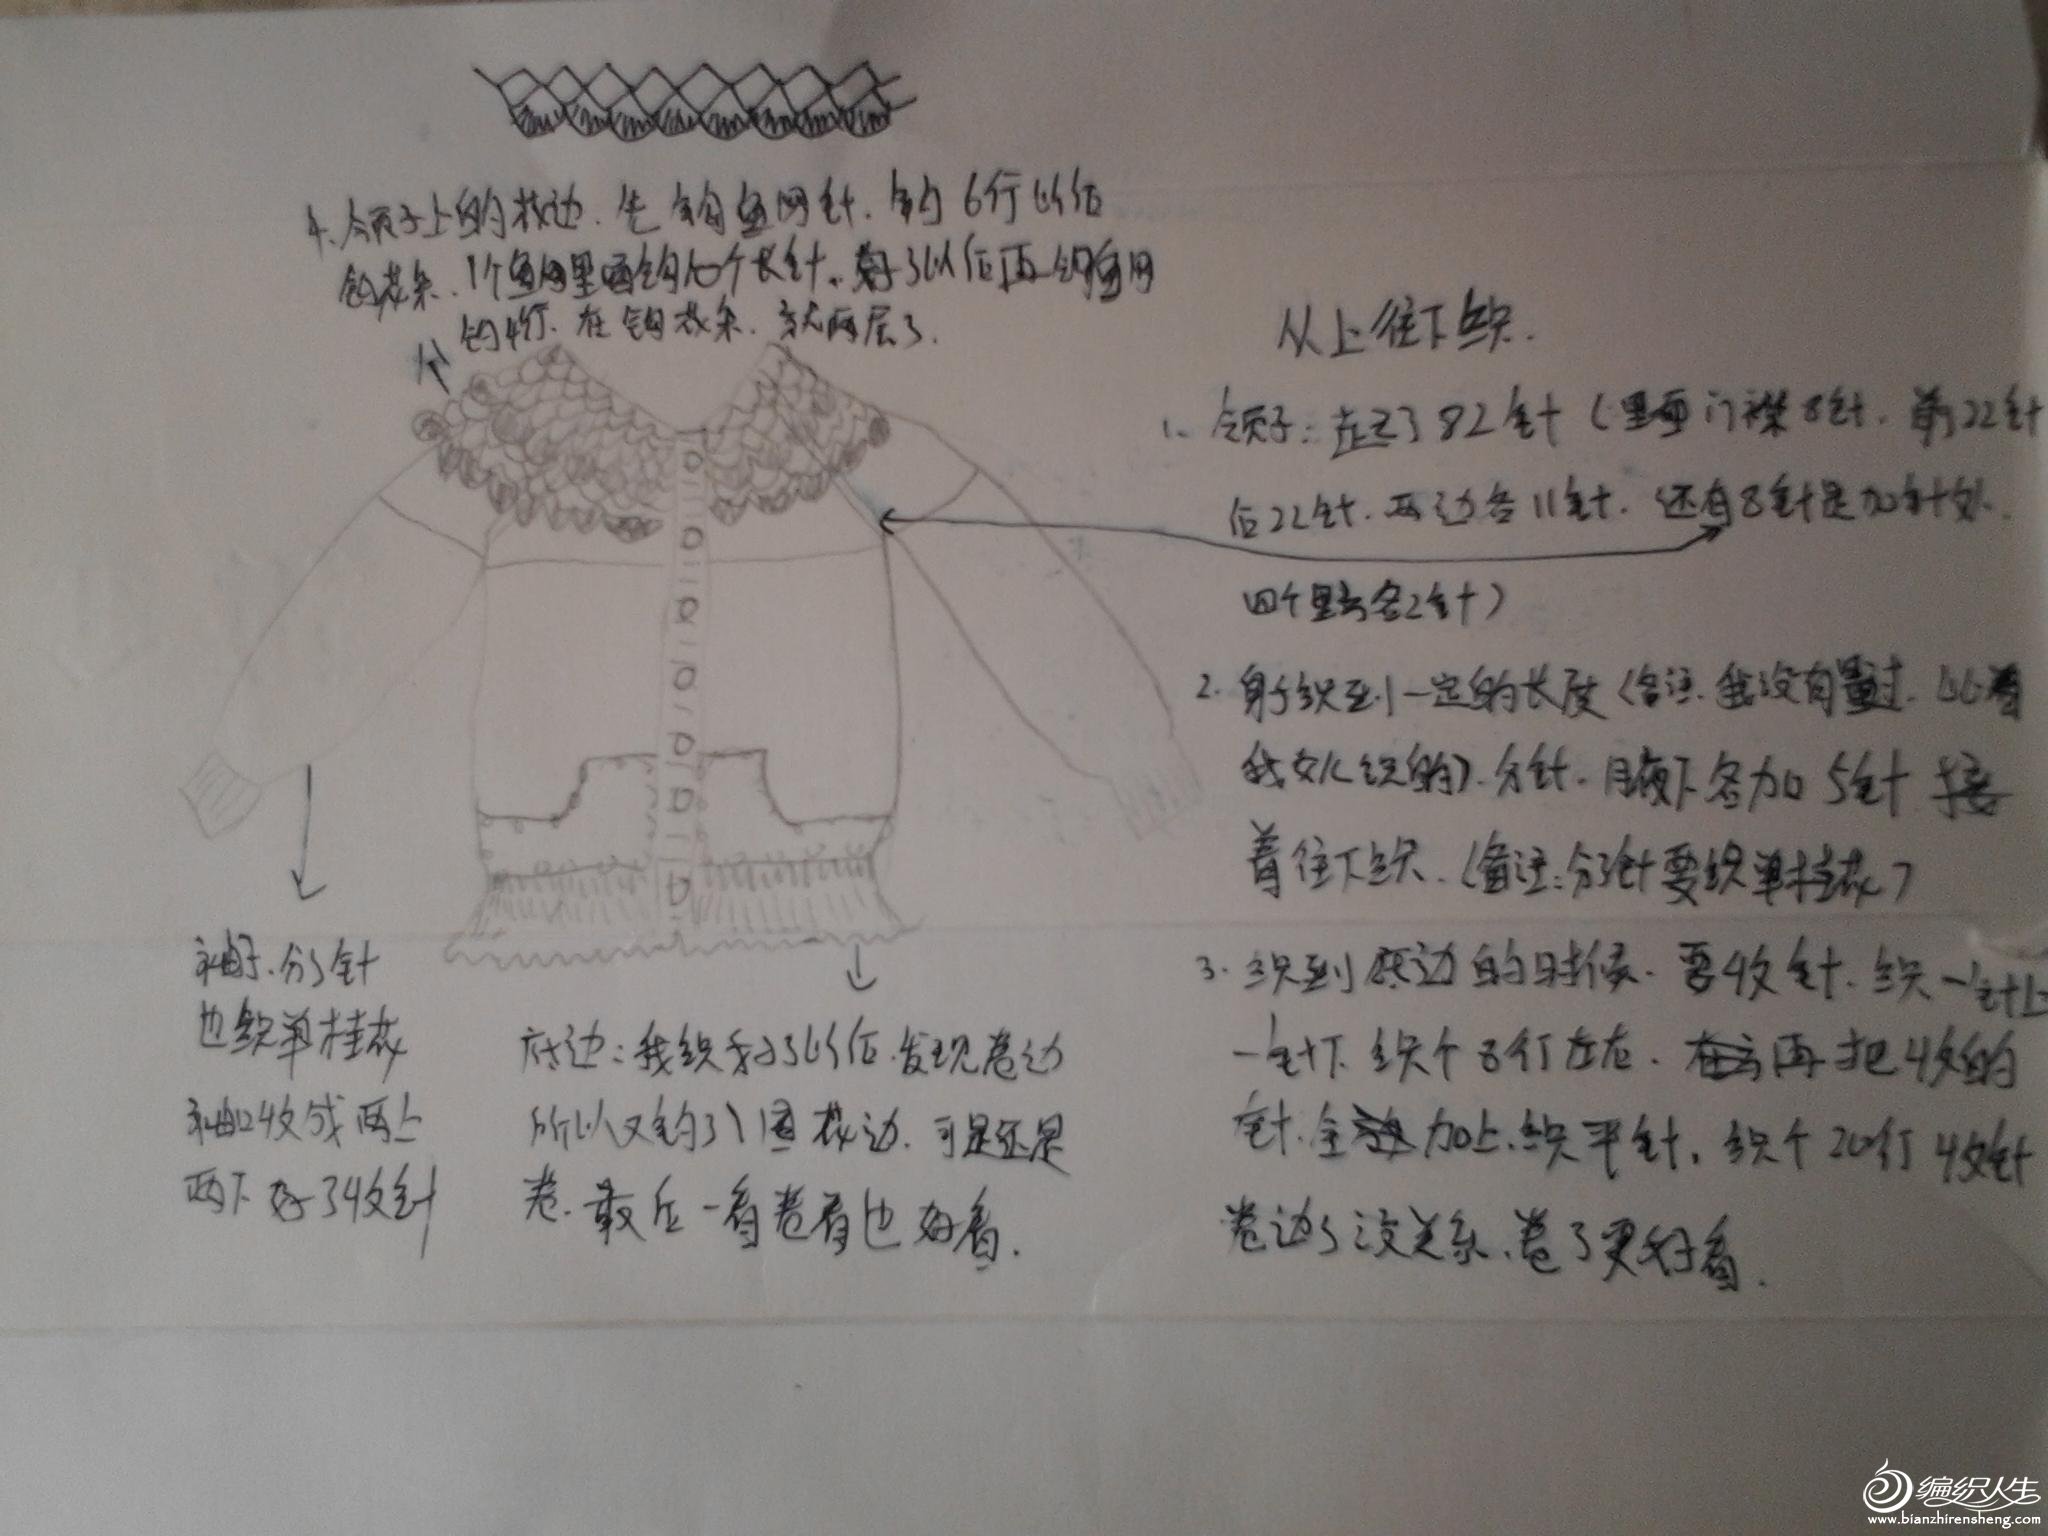 4、领子上的花边.先钩鱼网针.钩6行以后
钩花朵.1个鱼网里面钩10个长针.好了以后再钩鱼网
钩4行.在钩花朵.就两层了.
从上往下织.
1、领子:起了82针(里面门襟8针.前22针
后22针.两边各11针.还有8针是加针处.
四个里头各2针)
2.身子织到一定的长度(备注.我没有量过.比着
我女儿织的).分针.腋下各加5针 接
着往下织.(备注:分了针要织单桂花)
3.织到底边的时候.要收针.织一针上
一针下.织个8行左右.再把收的
针.全加上.织平针.织个20行收针
卷边了没关系、卷了更好看.
袖子.分了针
也织单桂花
袖口收成两上
两下好了收针
底边:我织好了以后.发现卷边
所以又钩了1圈花边.可是还是
卷.最后一看卷着也好看.
编织人生
www.bianzhirensheng.com